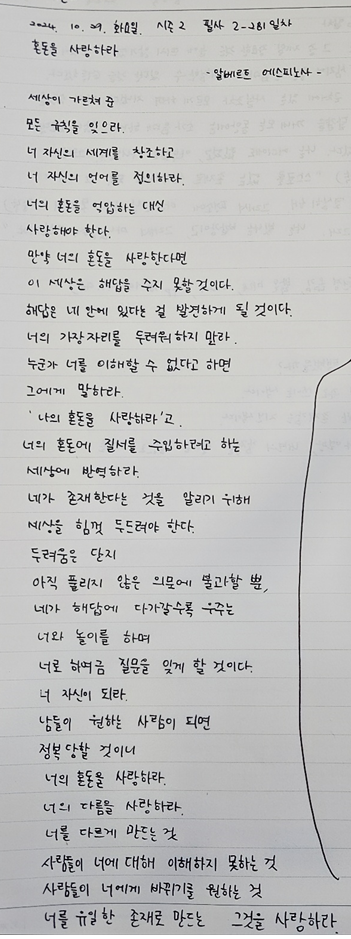 2024. 10. 29. 화요일. 시즌 2 필사 2-281일차
혼돈을 사랑하라
- 알베르트 에스피노사 -
세상이 가르쳐 준
모든 규칙을 잊으라.
너 자신의 세계를 창조하고
너 자신의 언어를 정의하라.
너의 혼돈을 억압하는 대신
사랑해야 한다.
만약 너의 혼돈을 사랑한다면
이 세상은 해답을 주지 못할 것이다.
해답은 네 안에 있다는 걸 발견하게 될 것이다.
너의 가장자리를 두려워하지 말라.
누군가 너를 이해할 수 없다고 하면
그에게 말하라.
'나의 혼돈을 사랑하라'고.
너의 혼돈에 질서를 주입하려고 하는
세상에 반역하라.
네가 존재한다는 것을 알리기 위해
세상을 힘껏 두드려야 한다.
두려움은 단지
아직 풀리지 않은 의문에 불과할 뿐,
네가 해답에 다가갈수록 우주는
너와 놀이를 하며
너로 하여금 질문을 잊게 할 것이다.
너 자신이 되라.
남들이 원하는 사람이 되면
정복당할 것이니
너의 혼돈을 사랑하라.
너의 다름을 사랑하라.
너를 다르게 만드는 것
사람들이 너에 대해 이해하지 못하는 것
사람들이 너에게 바뀌기를 원하는 것
너를 유일한 존재로 만드는 그것을 사랑하라.